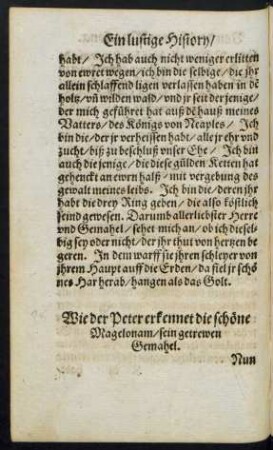 Ein lustige History/
habt/ Ich hab auch nicht weniger erlitten
von ewret wegen/ ich bin die selbige/ die jhr
allein schlaffend ligen verlassen haben in dē
holtz/ vñ wilden wald/ vnd jr seit der jenige/
der mich geführet hat auß dē hauß meines
Vatters/ des Königs von Neaples/ Ich
bin die/ der jr verheissen habt/ alle jr ehr vnd
zucht/ biß zu beschluß vnser Ehe/ Ich bin
auch die jenige/ die diese gülden Ketten hat
gehenckt an ewrn halß/ mit vergebung des
gewalt meines leibs. Ich bin die/ deren jhr
habt die drey Ring geben/ die also köstlich
seind gewesen. Darumb allerliebster Herre
vnd Gemahel/ sehet mich an/ ob ich diesel-
big sey oder nicht/ der jhr thut von hertzen be
geren. In dem warff sie jhren schleyer von
jhrem Haupt auff die Erden/ da fiel jr schö
nes Har herab/ hangen als das Golt.
Wie der Peter erkennet die schöne
Magelonam/ sein getrewen
Gemahel.
Nun